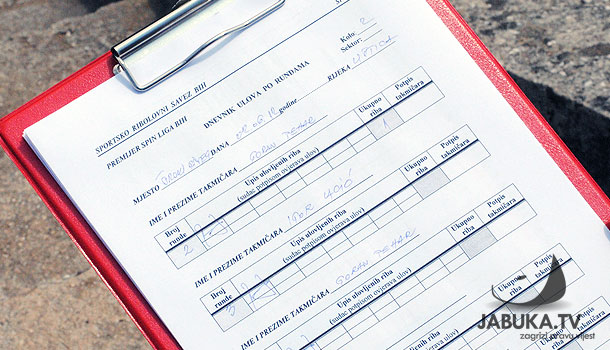 SPORTSKO RIBOLOVNI SAVEZ BIH
PREMIJER SPIN LIGA BIH
DNEVNIK ULOVA PO RUNDAMA
Kolo 2
Sektor:
MJESTO DANA godine RIJEKA
IME I PREZIME TAKMIČARA GORAN TEHAR
Broj runde Upis ulovljenih riba (sudac potpisom ovjerava ulov) Ukupno riba Potpis takmičara
2 1
IME I PREZIME TAKMIČARA IGOR
Broj runde Upis ulovljenih riba (sudac potpisom ovjerava ulov) Ukupno riba Potpis takmičara
3
IME I PREZIME TAKMIČARA GORAN TEHAR
Upis ulovljenih riba (sudac potpisom ovjerava ulov) Ukupno riba Potpis takmičara
JABUKA.TV
zagrizi pravu vijest